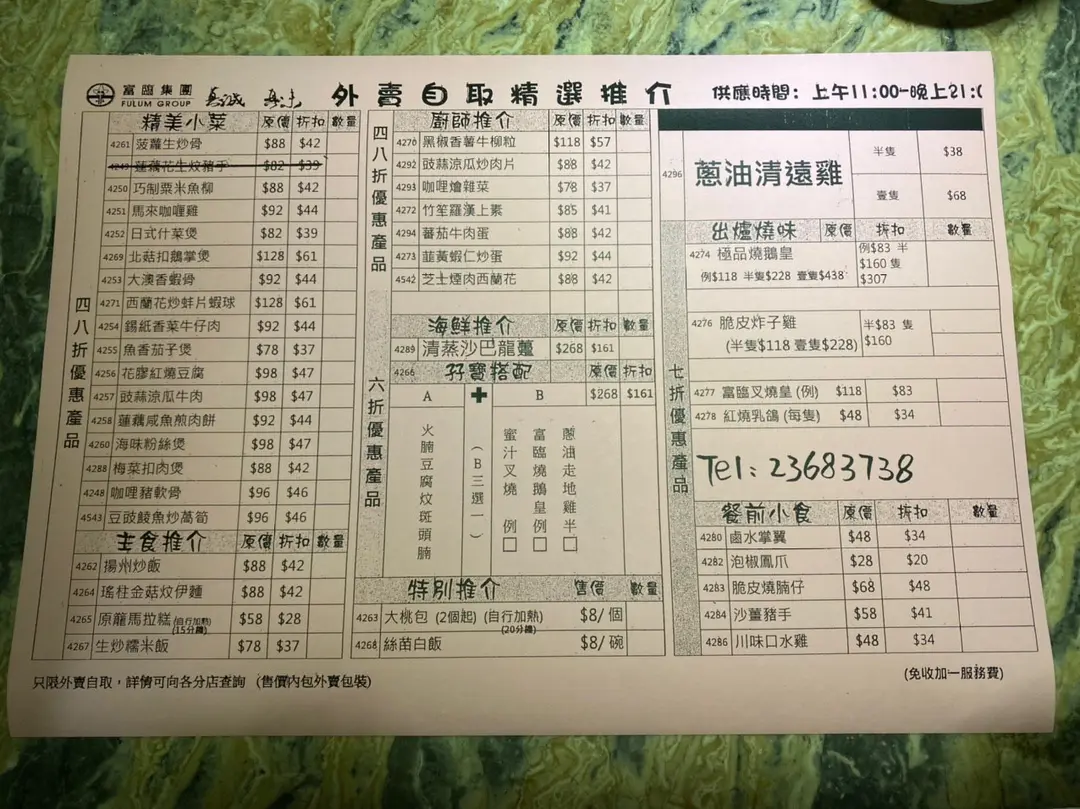 富臨集團
FULUM GROUP
外賣自取精選推介
供應時間：上午11:00-晚上21:0
四八折優惠產品
精美小菜 原價 折扣 數量
4261 菠蘿生炒骨 $88 $42
4249 蓮藕花生炆豬手 $82 $39
4250 巧制粟米魚柳 $88 $42
4251 馬來咖喱雞 $92 $44
4252 日式什菜煲 $82 $39
4269 北菇扣鵝掌煲 $128 $61
4253 大澳香蝦骨 $92 $44
4271 西蘭花炒蚌片蝦球 $128 $61
4254 錫紙香菜牛仔肉 $92 $44
4255 魚香茄子煲 $78 $37
4256 花膠紅燒豆腐 $98 $47
4257 豉蒜涼瓜牛肉 $98 $47
4258 蓮藕咸魚煎肉餅 $92 $44
4260 海味粉絲煲 $98 $47
4288 梅菜扣肉煲 $88 $42
4248 咖哩豬軟骨 $96 $46
4543 豆豉鯪魚炒萵筍 $96 $46
主食推介 原價 折扣 數量
4262 揚州炒飯 $88 $42
4264 瑤柱金菇炆伊麵 $88 $42
4265 原籠馬拉糕 (自行加熱) $58 $28
(15分鐘)
4267 生炒糯米飯 $78 $37
四八折優惠產品
廚師推介 原價 折扣 數量
4270 黑椒香薯牛柳粒 $118 $57
4292 豉蒜涼瓜炒肉片 $88 $42
4293 咖哩燴雜菜 $78 $37
4272 竹笙羅漢上素 $85 $41
4294 蕃茄牛肉蛋 $88 $42
4273 韮黃蝦仁炒蛋 $92 $44
4542 芝士煙肉西蘭花 $88 $42
六折優惠產品
海鮮推介 原價 折扣 數量
4289 清蒸沙巴龍躉 $268 $161
4266 孖寶搭配 原價 折扣
A + B $268 $161
火腩豆腐炆斑頭腩
(B三選一)
蜜汁叉燒 例 □
富臨燒鵝皇例 □
蔥油走地雞半 □
特別推介 售價 數量
4263 大桃包 (2個起) (自行加熱) $8/ 個
(20分鐘)
4268 絲苗白飯 $8/ 碗
4296 蔥油清遠雞
半隻 $38
壹隻 $68
七折優惠產品
出爐燒味 原價 折扣 數量
4274 極品燒鵝皇
例$118 半隻$228 壹隻$438
例$83 半
$160 隻
$307
4276 脆皮炸子雞
(半隻$118 壹隻$228)
半$83 隻
$160
4277 富臨叉燒皇 (例) $118 $83
4278 紅燒乳鴿 (每隻) $48 $34
Tel: 23683738
餐前小食 原價 折扣 數量
4280 鹵水掌翼 $48 $34
4282 泡椒鳳爪 $28 $20
4283 脆皮燒腩仔 $68 $48
4284 沙薑豬手 $58 $41
4286 川味口水雞 $48 $34
只限外賣自取，詳情可向各分店查詢 (售價內包外賣包裝)
(免收加一服務費)